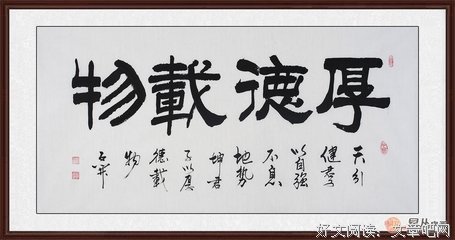 厚德載物
天行
健君子
以自強
不息
地勢
坤君
子以厚
德載
物
好文阅读：文章吧网